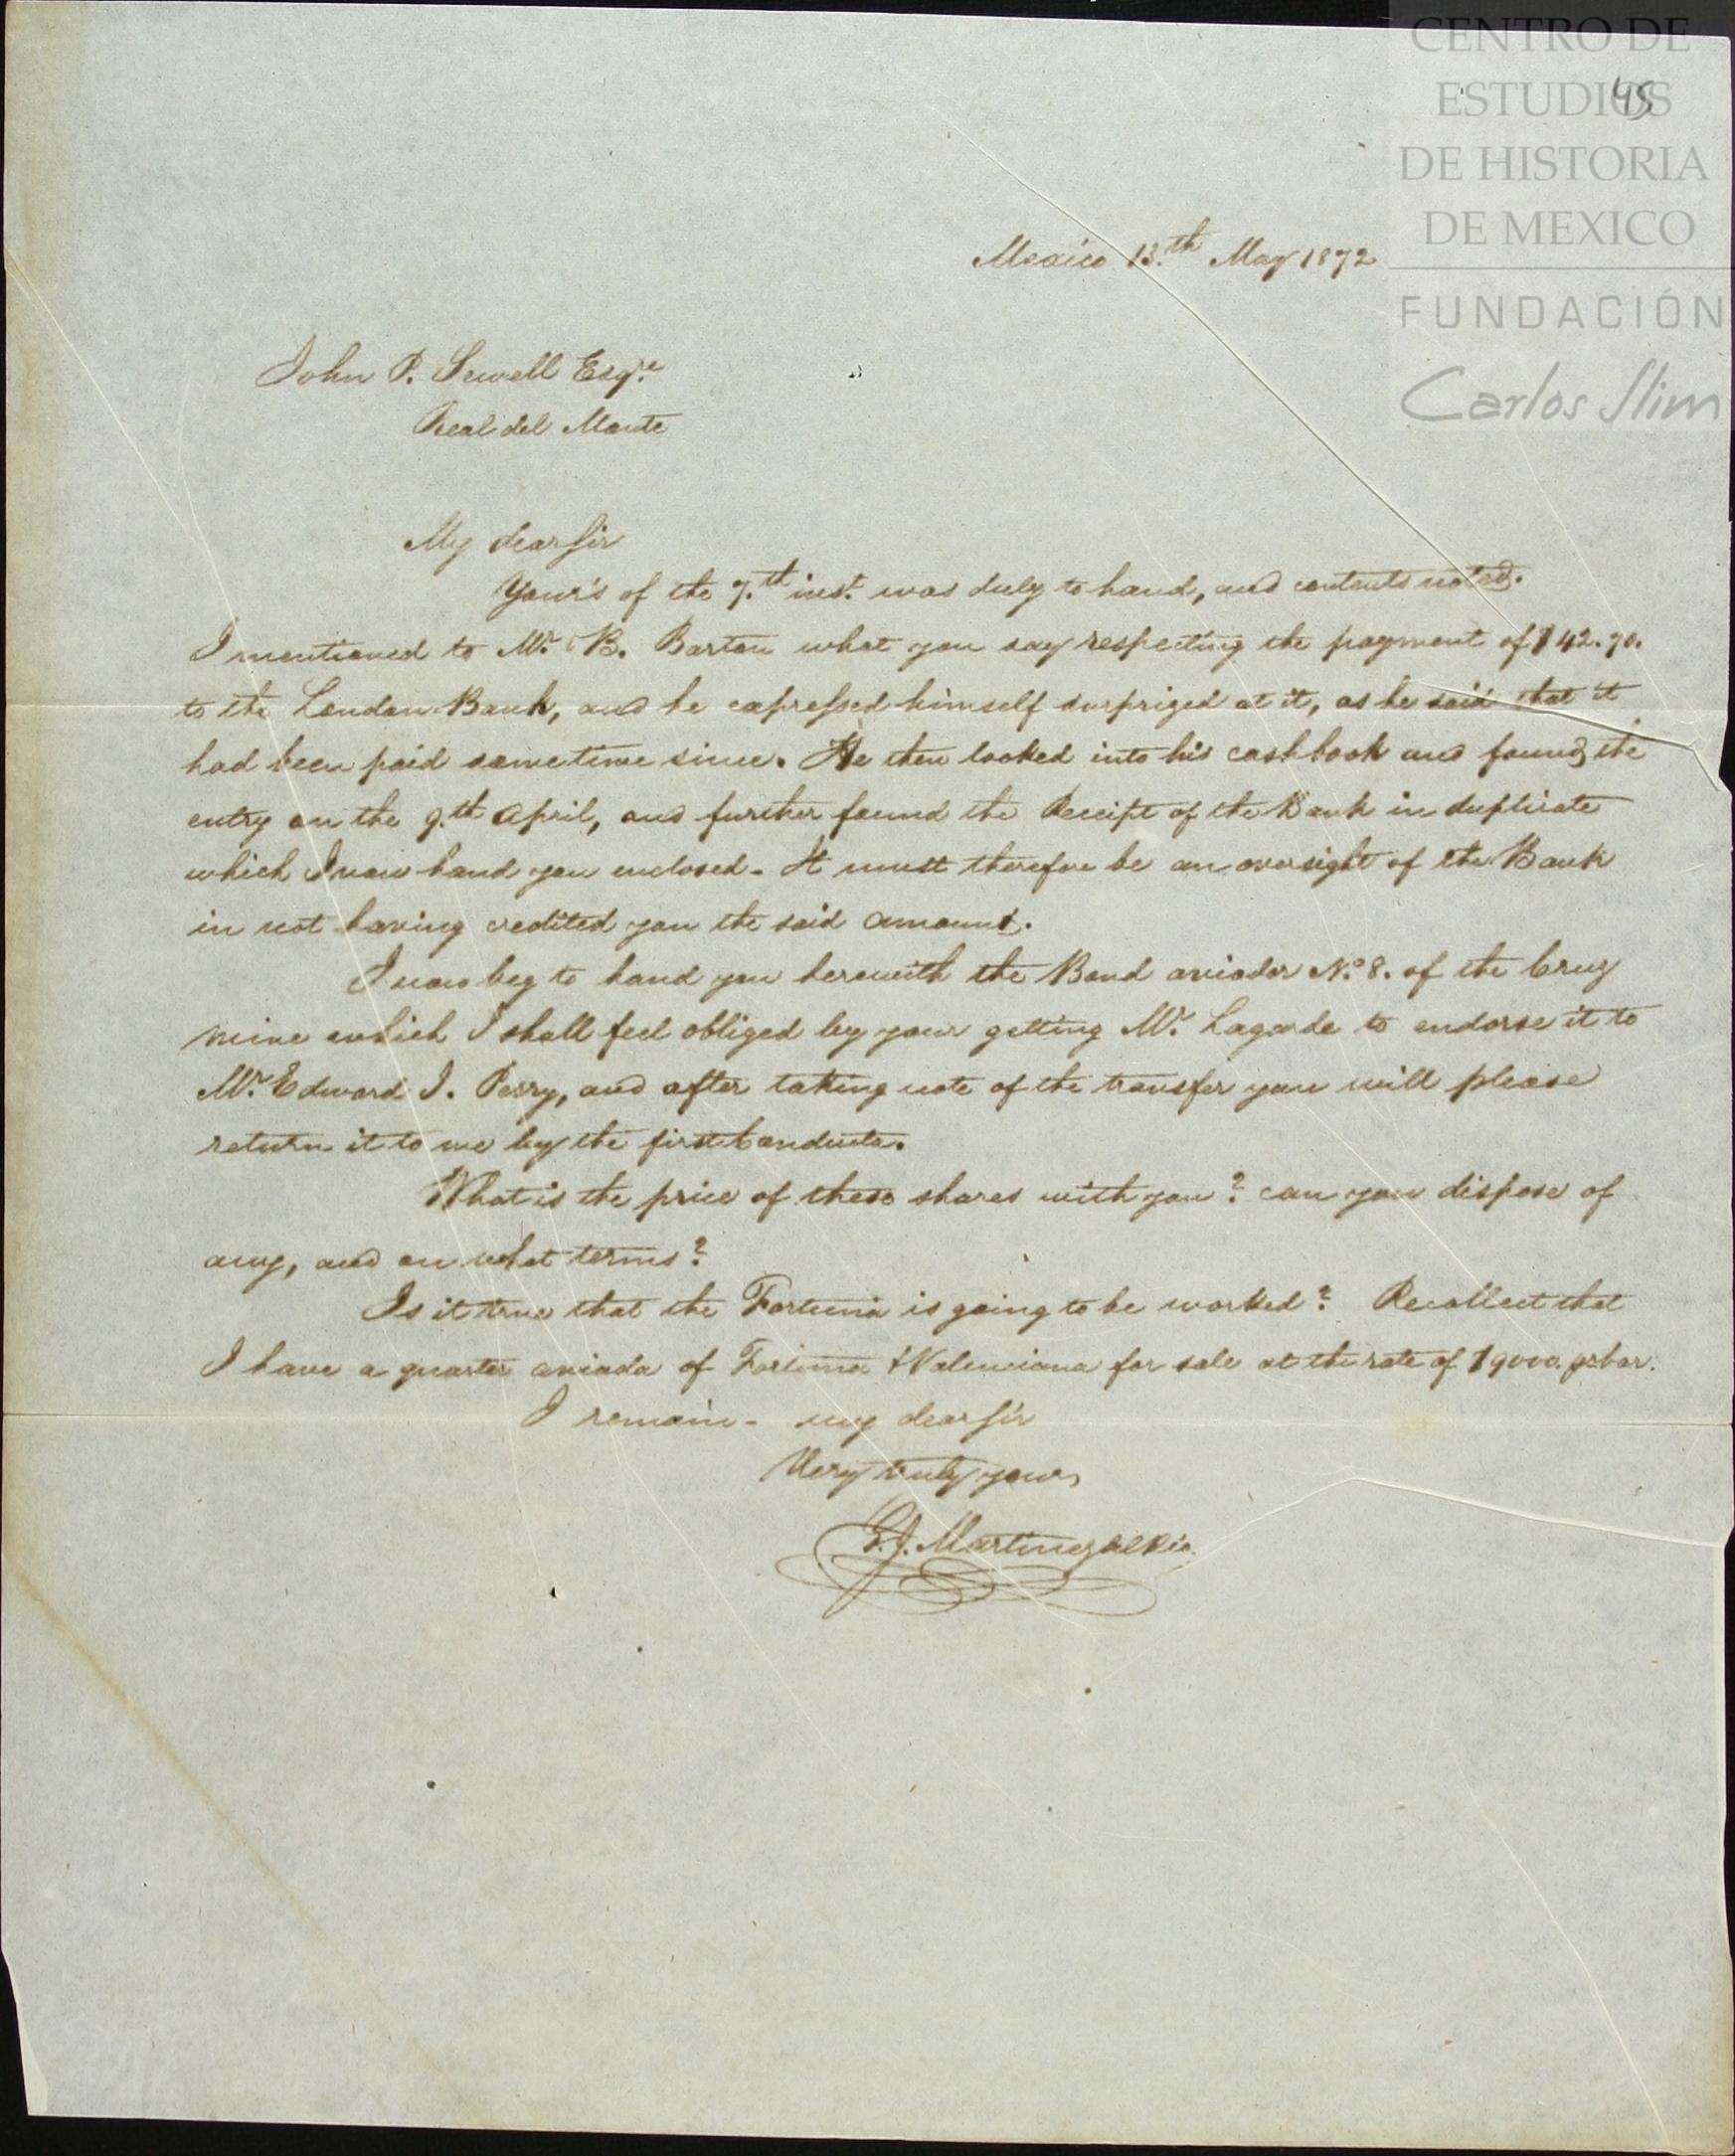 CENTRO DE
ESTUDIOS
DE HISTORIA
DE MEXICO
FUNDACIÓN
Carlos Slim
45
Mexico 13.th May 1872
John P. Sewell Esqre.
Real del Monte
My dear Sir
Your's of the 7.th inst. was duly to hand, and contents noted.
I mentioned to Mr. B. Barton what you say respecting the payment of $42.70.
to the London Bank, and he expressed himself surprized at it, as he said that it
had been paid sometime since. He then looked into his cashbook and found the
entry on the 9.th April, and further found the Receipt of the Bank in duplicate
which I now hand you enclosed. It must therefore be an oversight of the Bank
in not having credited you the said amount.
I now beg to hand you herewith the Bond aviador No. 8. of the Cruz
mine which I shall feel obliged by your getting Mr. Lagarde to endorse it to
Mr. Edward J. Perry, and after taking note of the transfer you will please
return it to me by the first Conducta.
What is the price of these shares with you? can you dispose of
any, and on what terms?
Is it true that the Fortuna is going to be worked? Recollect that
I have a quarter aviada of Fortuna & Valenciana for sale at the rate of $9000. pr bar.
I remain - my dear Sir
Very truly yours
G. J. Martinez del Rio.